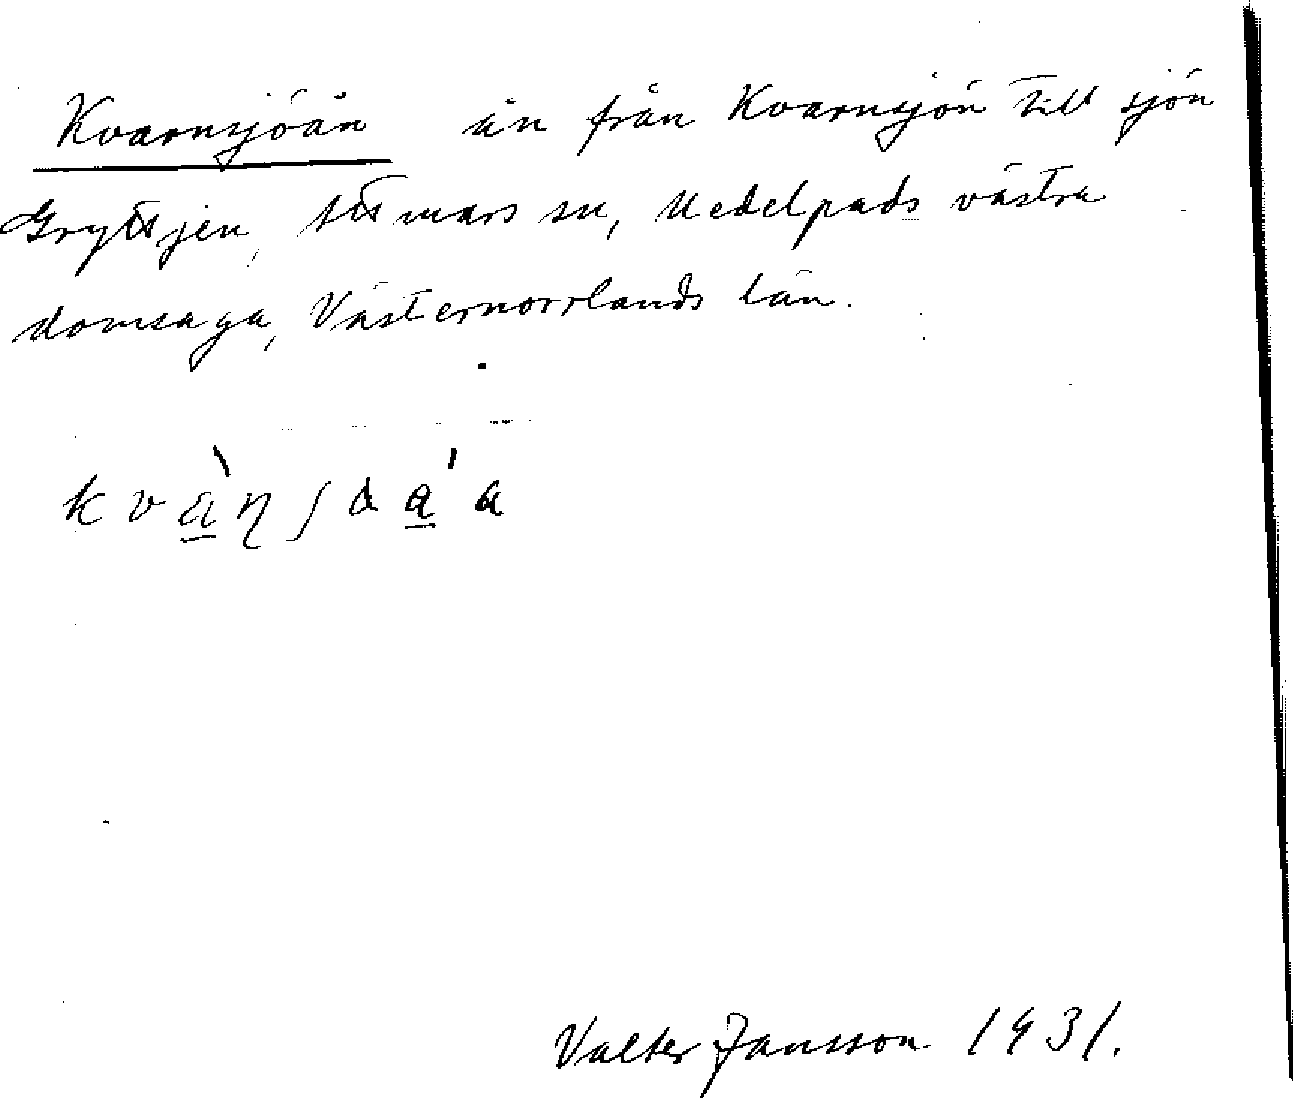 Kvarnsjöån ån från Kvarnsjön till sjön
Gryttjen, Attmars sn, Medelpads västra
domsaga, Västernorrlands län.
Valter Jansson 1931.